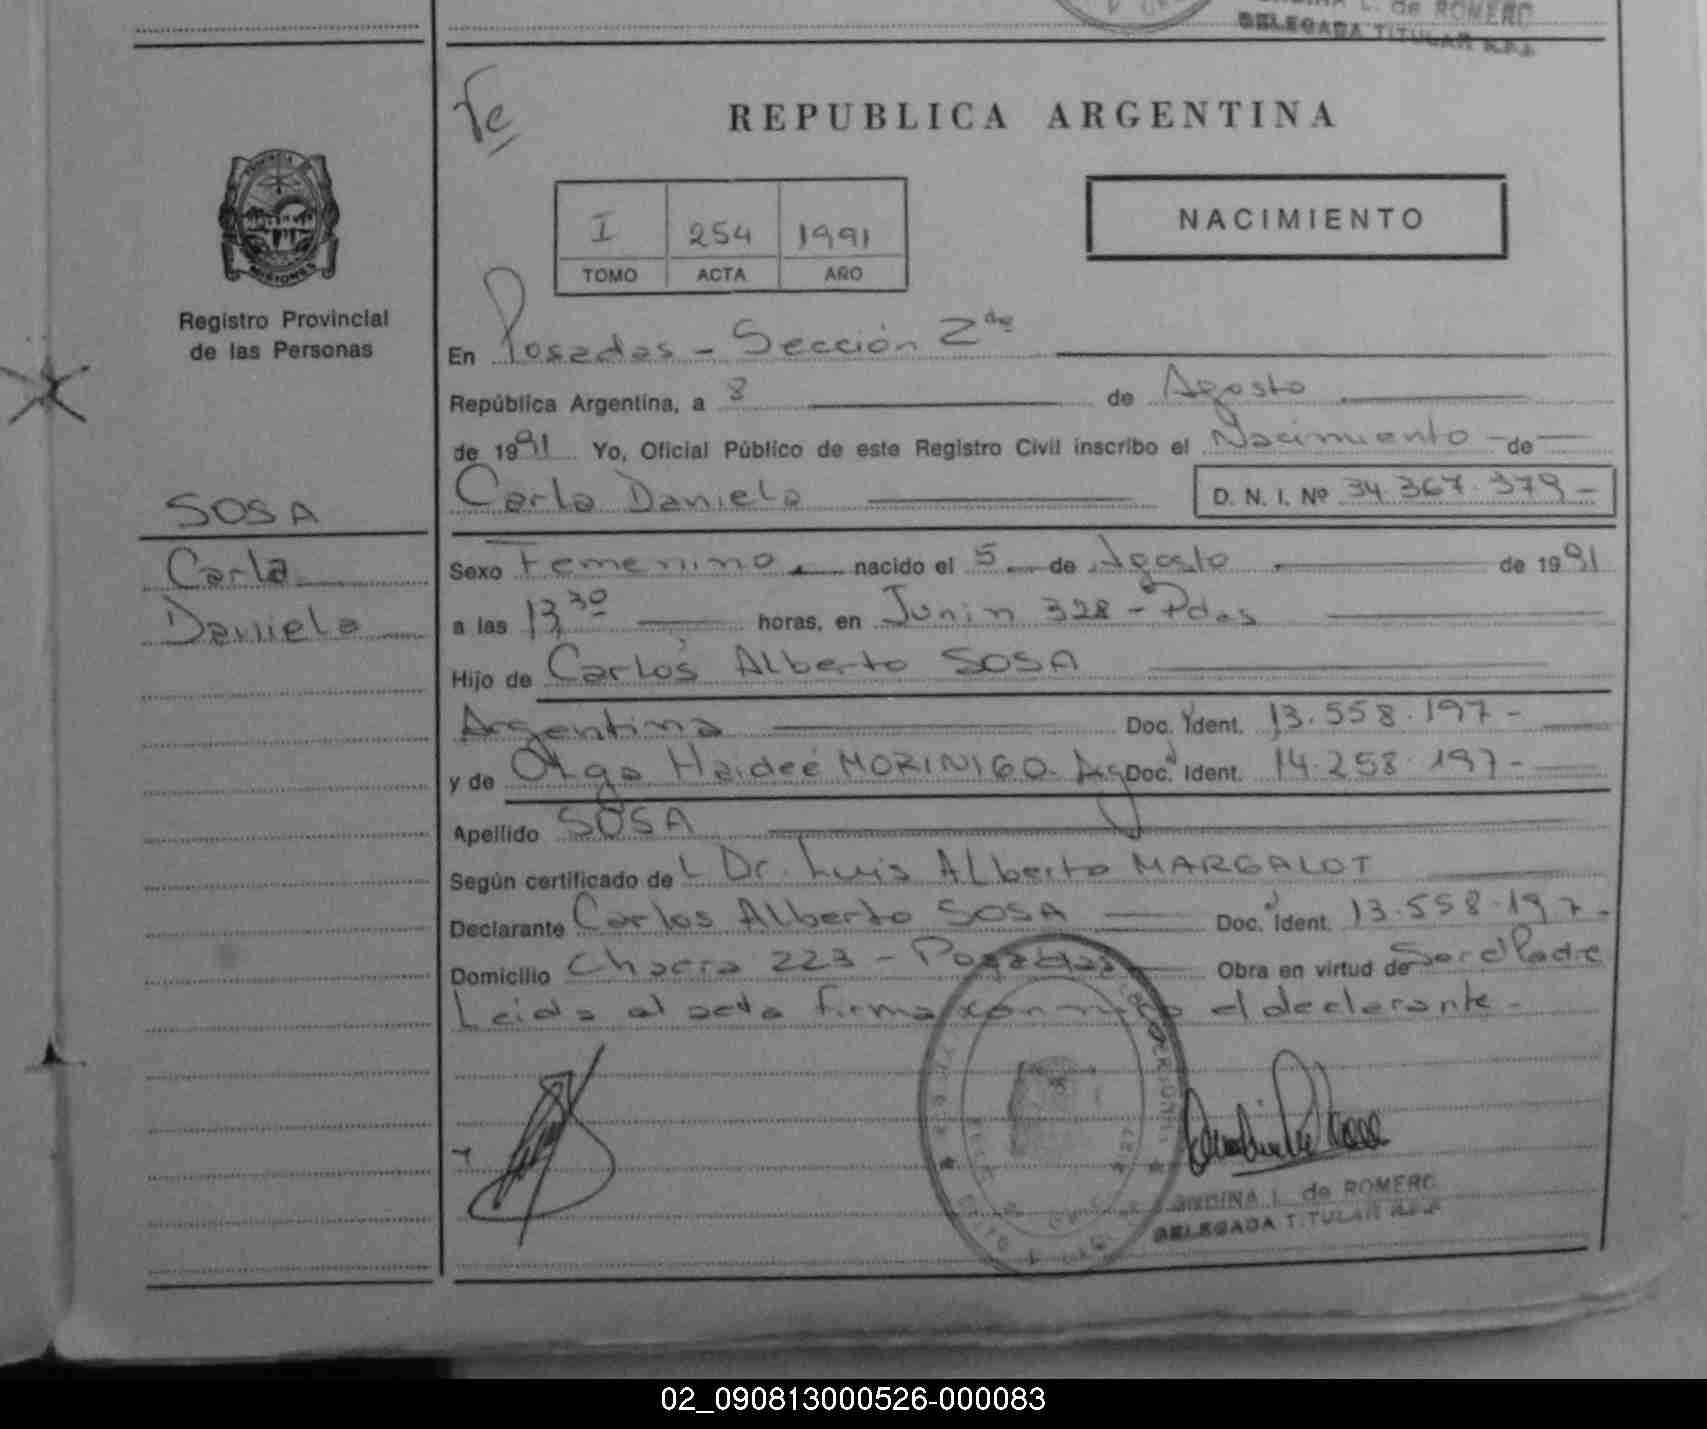 L. de ROMERO
DELEGADA TITULAR R.P.P.
Te
REPUBLICA ARGENTINA
PROVINCIA
MISIONES
NACIMIENTO
I 254 1991
TOMO ACTA AÑO
Registro Provincial
de las Personas
En Posadas - Sección 2da
República Argentina, a 8 de Agosto
de 1991 Yo, Oficial Público de este Registro Civil inscribo el Nacimiento de
Carla Daniela D. N. I. Nº 34.367.379 -
SOSA
Carla
Daniela
Sexo Femenino nacido el 5 de Agosto de 1991
a las 13,30 horas, en Junin 328 - Pdas
Hijo de Carlos Alberto SOSA
Argentina Doc. Ident. 13.558.197 -
y de Olga Haideé MORINIGO Arg Doc. Ident. 14.258.197 -
Apellido SOSA
Según certificado de L Dr. Luis Alberto MARGALOT
Declarante Carlos Alberto SOSA Doc. Ident. 13.558.197 -
Domicilio Chacra 223 - Posadas Obra en virtud de Ser el Padre
Leida el acta firma conmigo el declarante -
ONDINA L. de ROMERO
DELEGADA TITULAR R.P.P.
02_090813000526-000083